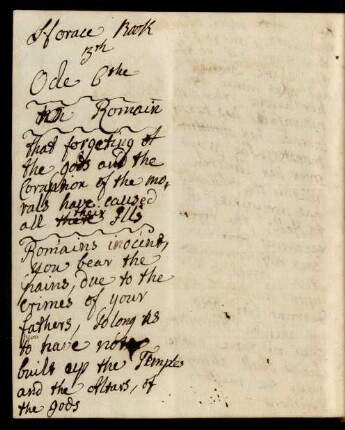 Horace Book
3th
Ode 6the
Romain
That forgeting of
the gods and the
Coraption of the mo,
rals have caused
all their Ills
Romains inocent,
you bear the
pains, due to the
crimes of your
fathers, so long as
to have not
built up the Temples
and the Altars, of
the gods